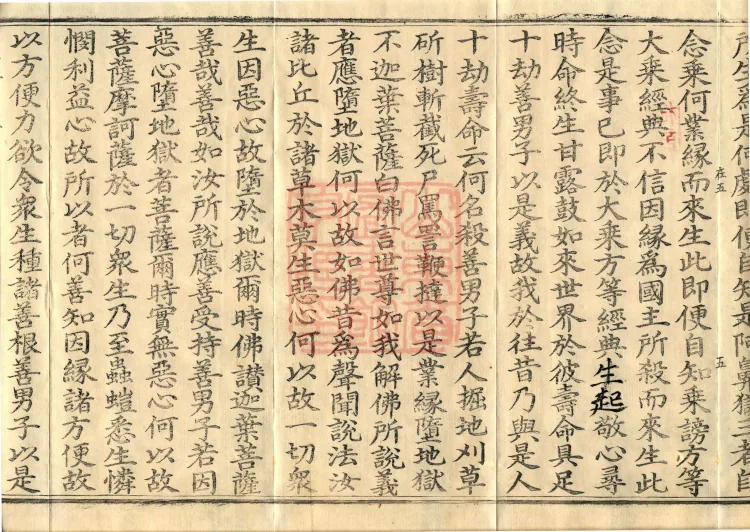 所生為是何處即便自知是阿鼻獄三者自
念乗何業縁而來生此即便自知乗謗方等
大乗經典不信因縁為國主所殺而來生此
念是事已即於大乗方等經典生起敬心尋
時命終生甘露鼓如來世界於彼壽命具足
十劫善男子以是義故我於往昔乃與是人
十劫壽命云何名殺善男子若人掘地刈草
斫樹斬截死尸罵詈鞭撻以是業縁墮地獄
不迦葉菩薩白佛言世尊如我解佛所說義
者應墮地獄何以故如佛昔為聲聞說法汝
諸比丘於諸草木莫生惡心何以故一切衆
生因惡心故墮於地獄爾時佛讃迦葉菩薩
善哉善哉如汝所說應善受持善男子若因
惡心墮地獄者菩薩爾時實無惡心何以故
菩薩摩訶薩於一切衆生乃至蟲螘悉生憐
憫利益心故所以者何善知因縁諸方便故
以方便力欲令衆生種諸善根善男子以是
在五
五